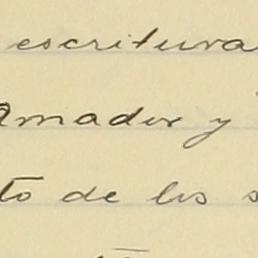 escritura
Amador y
to de los s